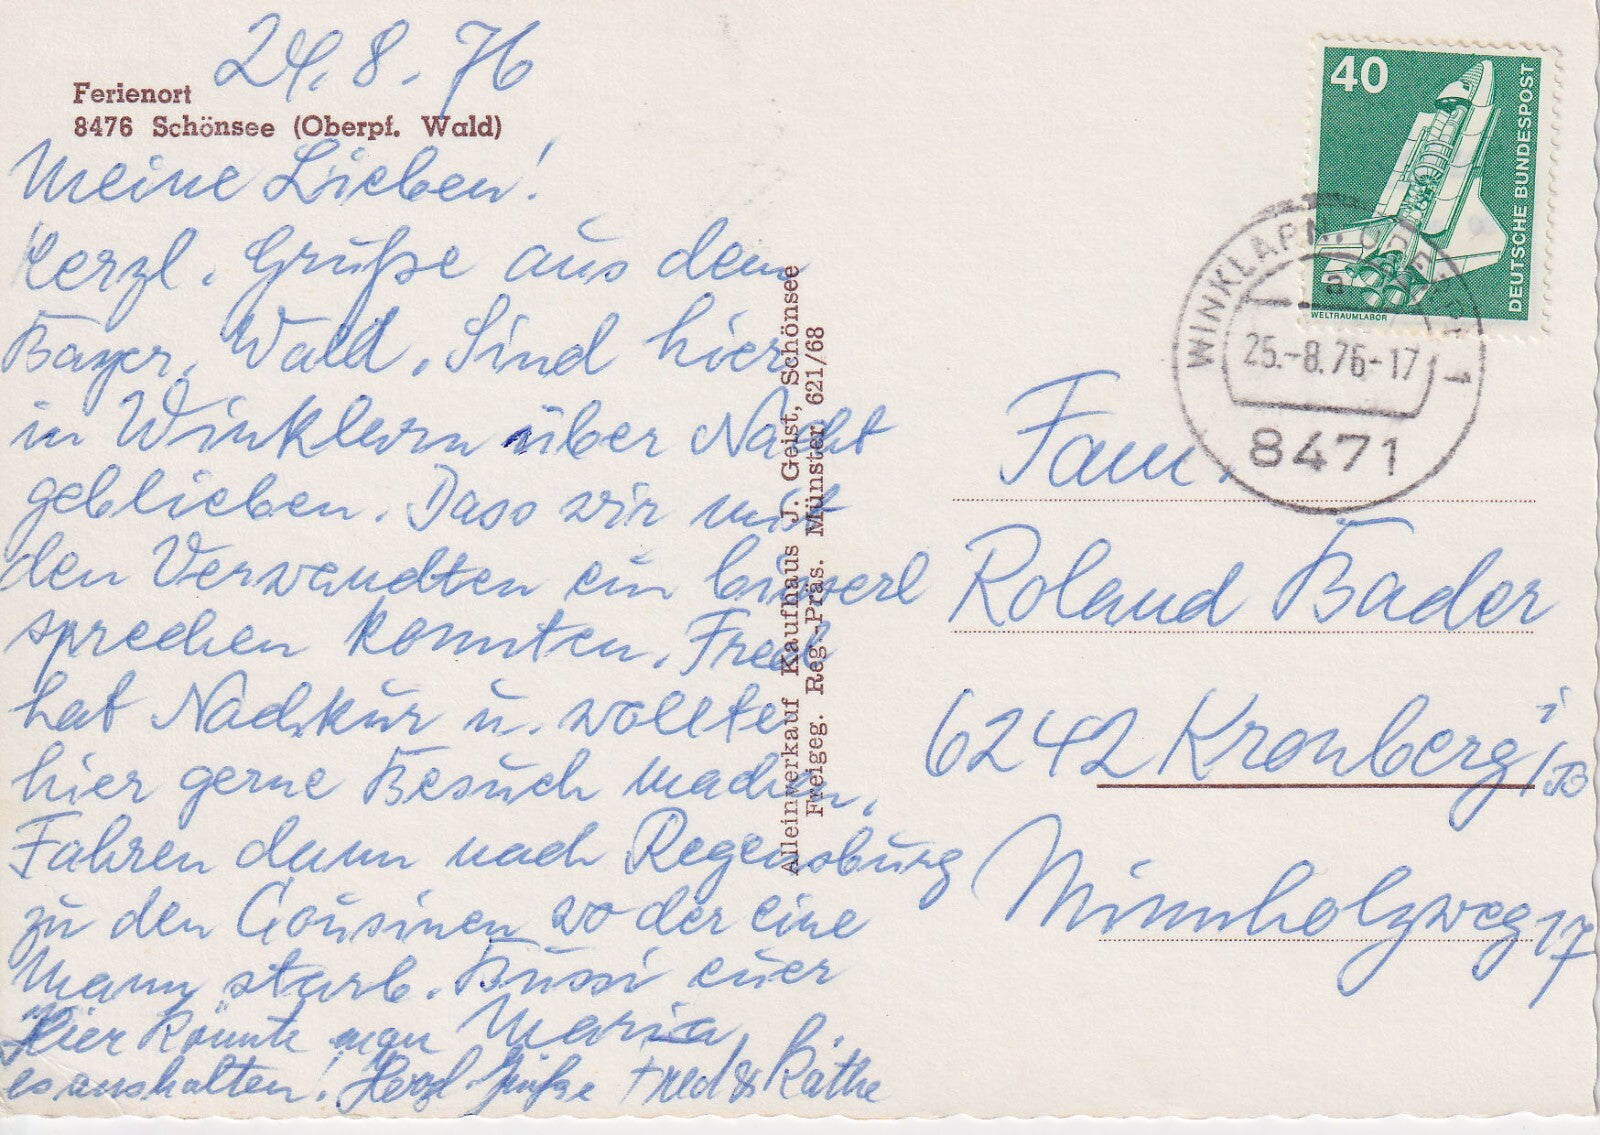 24.8.76
Ferienort
8476 Schönsee (Oberpf. Wald)
Meine Lieben!
Herzl. Grüße aus dem
Bayer. Wald. Sind hier
in Winklarn über Nacht
geblieben. Dass wir mit
den Verwandten ein bisserl
sprechen konnten. Fred
hat Nachkur u. wollte
hier gerne Besuch machen.
Fahren dann nach Regensburg
zu den Cousinen wo der eine
Mann starb. Bussi euer
Maria
Hier könnte man
es aushalten! Herzl. Grüße Fred & Käthe
Alleinverkauf Kaufhaus J. Geist, Schönsee
Freigeg. Reg.-Präs. Münster 621/68
40
DEUTSCHE BUNDESPOST
WELTRAUMLABOR
WINKLARN
25.-8.76-17
1
8471
Fam.
Roland Bader
6242 Kronberg
Minnholzweg 17